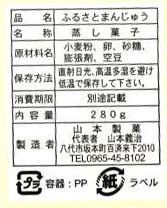 品名 ふるさとまんじゅう
名称 蒸し菓子
原材料名 小麦粉、卵、砂糖、
膨張剤、空豆
保存方法 直射日光、高温多湿を避け
低温で保存して下さい。
消費期限 別途記載
内容量 280g
製造者 山本製菓
代表者 山本義治
八代市坂本町百済来下2010
TEL0965-45-8102
プラ 容器:PP 紙 ラベル